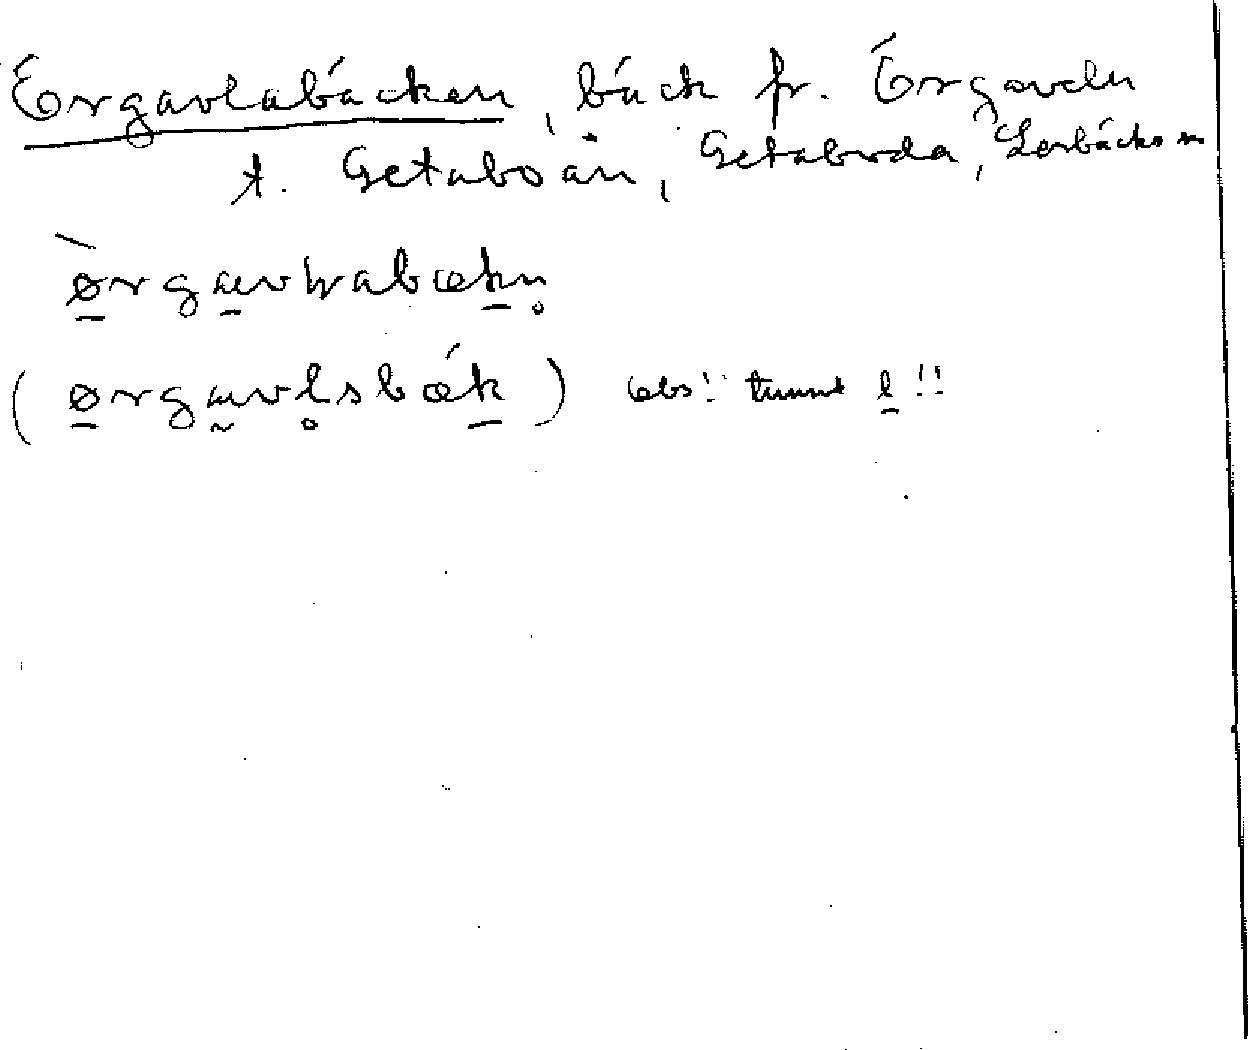 Örgavlabäcken, bäck fr. Örgaveln
t. Getaboån, Getabroda, Lerbäcks sn
ørgavlabækn
(ørgavlsbæk) obs! tunnt l!!